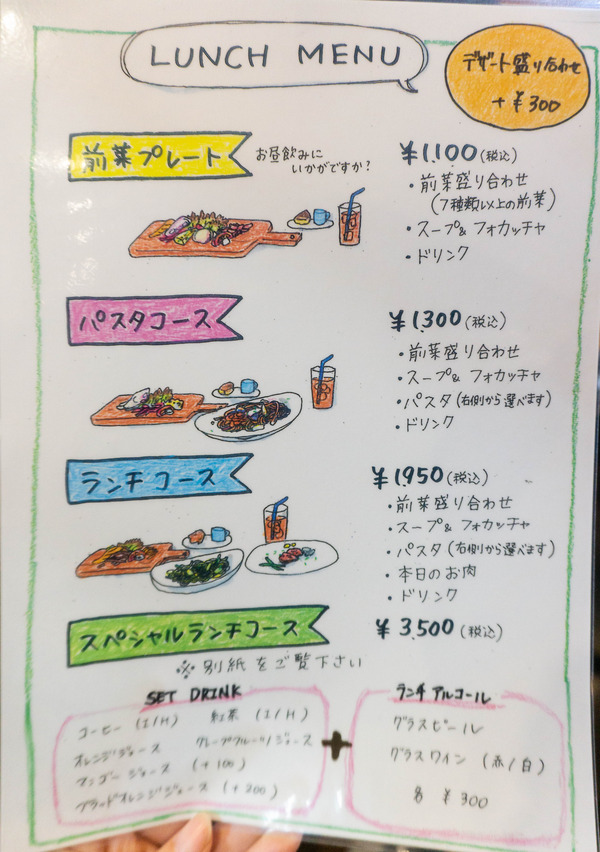 LUNCH MENU
デザート盛り合わせ
+ ¥300
前菜プレート
お昼飲みに
いかがですか?
¥1,100(税込)
・前菜盛り合わせ
(7種類以上の前菜)
・スープ& フォカッチャ
・ドリンク
パスタコース
¥1,300(税込)
・前菜盛り合わせ
・スープ& フォカッチャ
・パスタ(右側から選べます)
・ドリンク
ランチコース
¥1,950(税込)
・前菜盛り合わせ
・スープ& フォカッチャ
・パスタ(右側から選べます)
・本日のお肉
・ドリンク
スペシャルランチコース
¥3,500(税込)
※別紙をご覧下さい
SET DRINK
コーヒー (I/H) 紅茶 (I/H)
オレンジジュース グレープフルーツジュース
マンゴージュース (+100)
ブラッドオレンジジュース (+200)
+
ランチアルコール
グラスビール
グラスワイン (赤/白)
各 ¥300